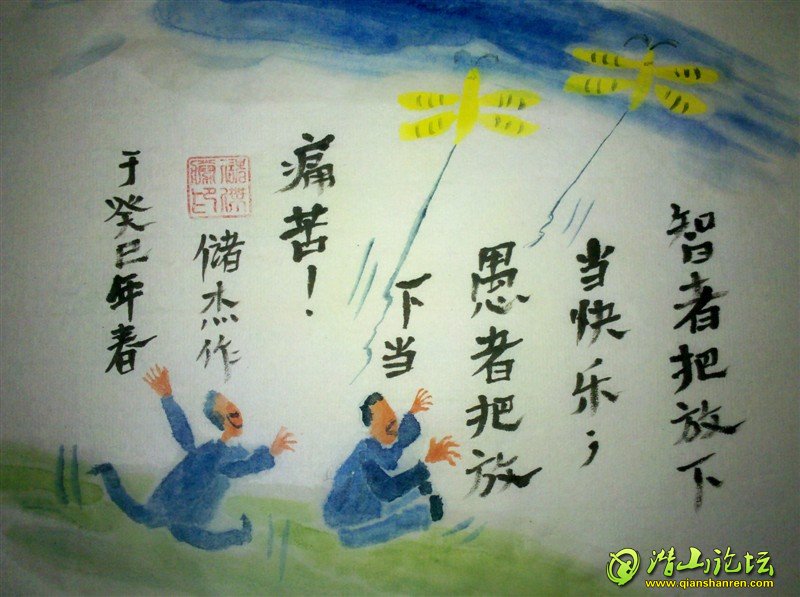 智者把放下
当快乐；
愚者把放
下当
痛苦！
储杰作
于癸巳年春
潜山论坛
www.qianshanren.com